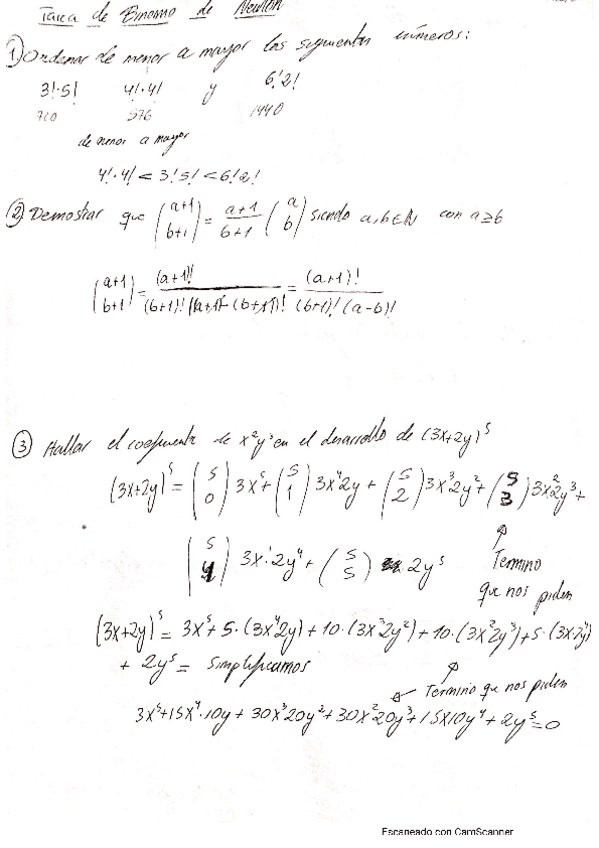 Tarea de Binomio de Newton
① Ordenar de menor a mayor los siguientes números:
3!·5! 4!·4! y 6!2!
720 576 1440
de menor a mayor
4!·4! < 3!5! < 6!2!
② Demostrar que (a+1 / b+1) = a+1/b+1 (a / b) siendo a,b∈N con a≥b
(a+1 / b+1) = (a+1)! / (b+1)! [(a+1)-(b+1)]! = (a+1)! / (b+1)! (a-b)!
③ Hallar el coeficiente de x²y³ en el desarrollo de (3x+2y)⁵
(3x+2y)⁵ = (5 / 0) 3x⁵ + (5 / 1) 3x⁴2y + (5 / 2) 3x³2y² + (5 / 3) 3x²2y³ +
(5 / 4) 3x·2y⁴ + (5 / 5) 2y⁵
Termino
que nos piden
(3x+2y)⁵ = 3x⁵ + 5·(3x⁴2y) + 10·(3x³2y²) + 10·(3x²2y³) + 5·(3x·2y⁴)
+ 2y⁵ = Simplificamos
Termino que nos piden
3x⁵+15x⁴·10y + 30x³20y² + 30x²20y³ + 15x10y⁴ + 2y⁵ = 0
Escaneado con CamScanner